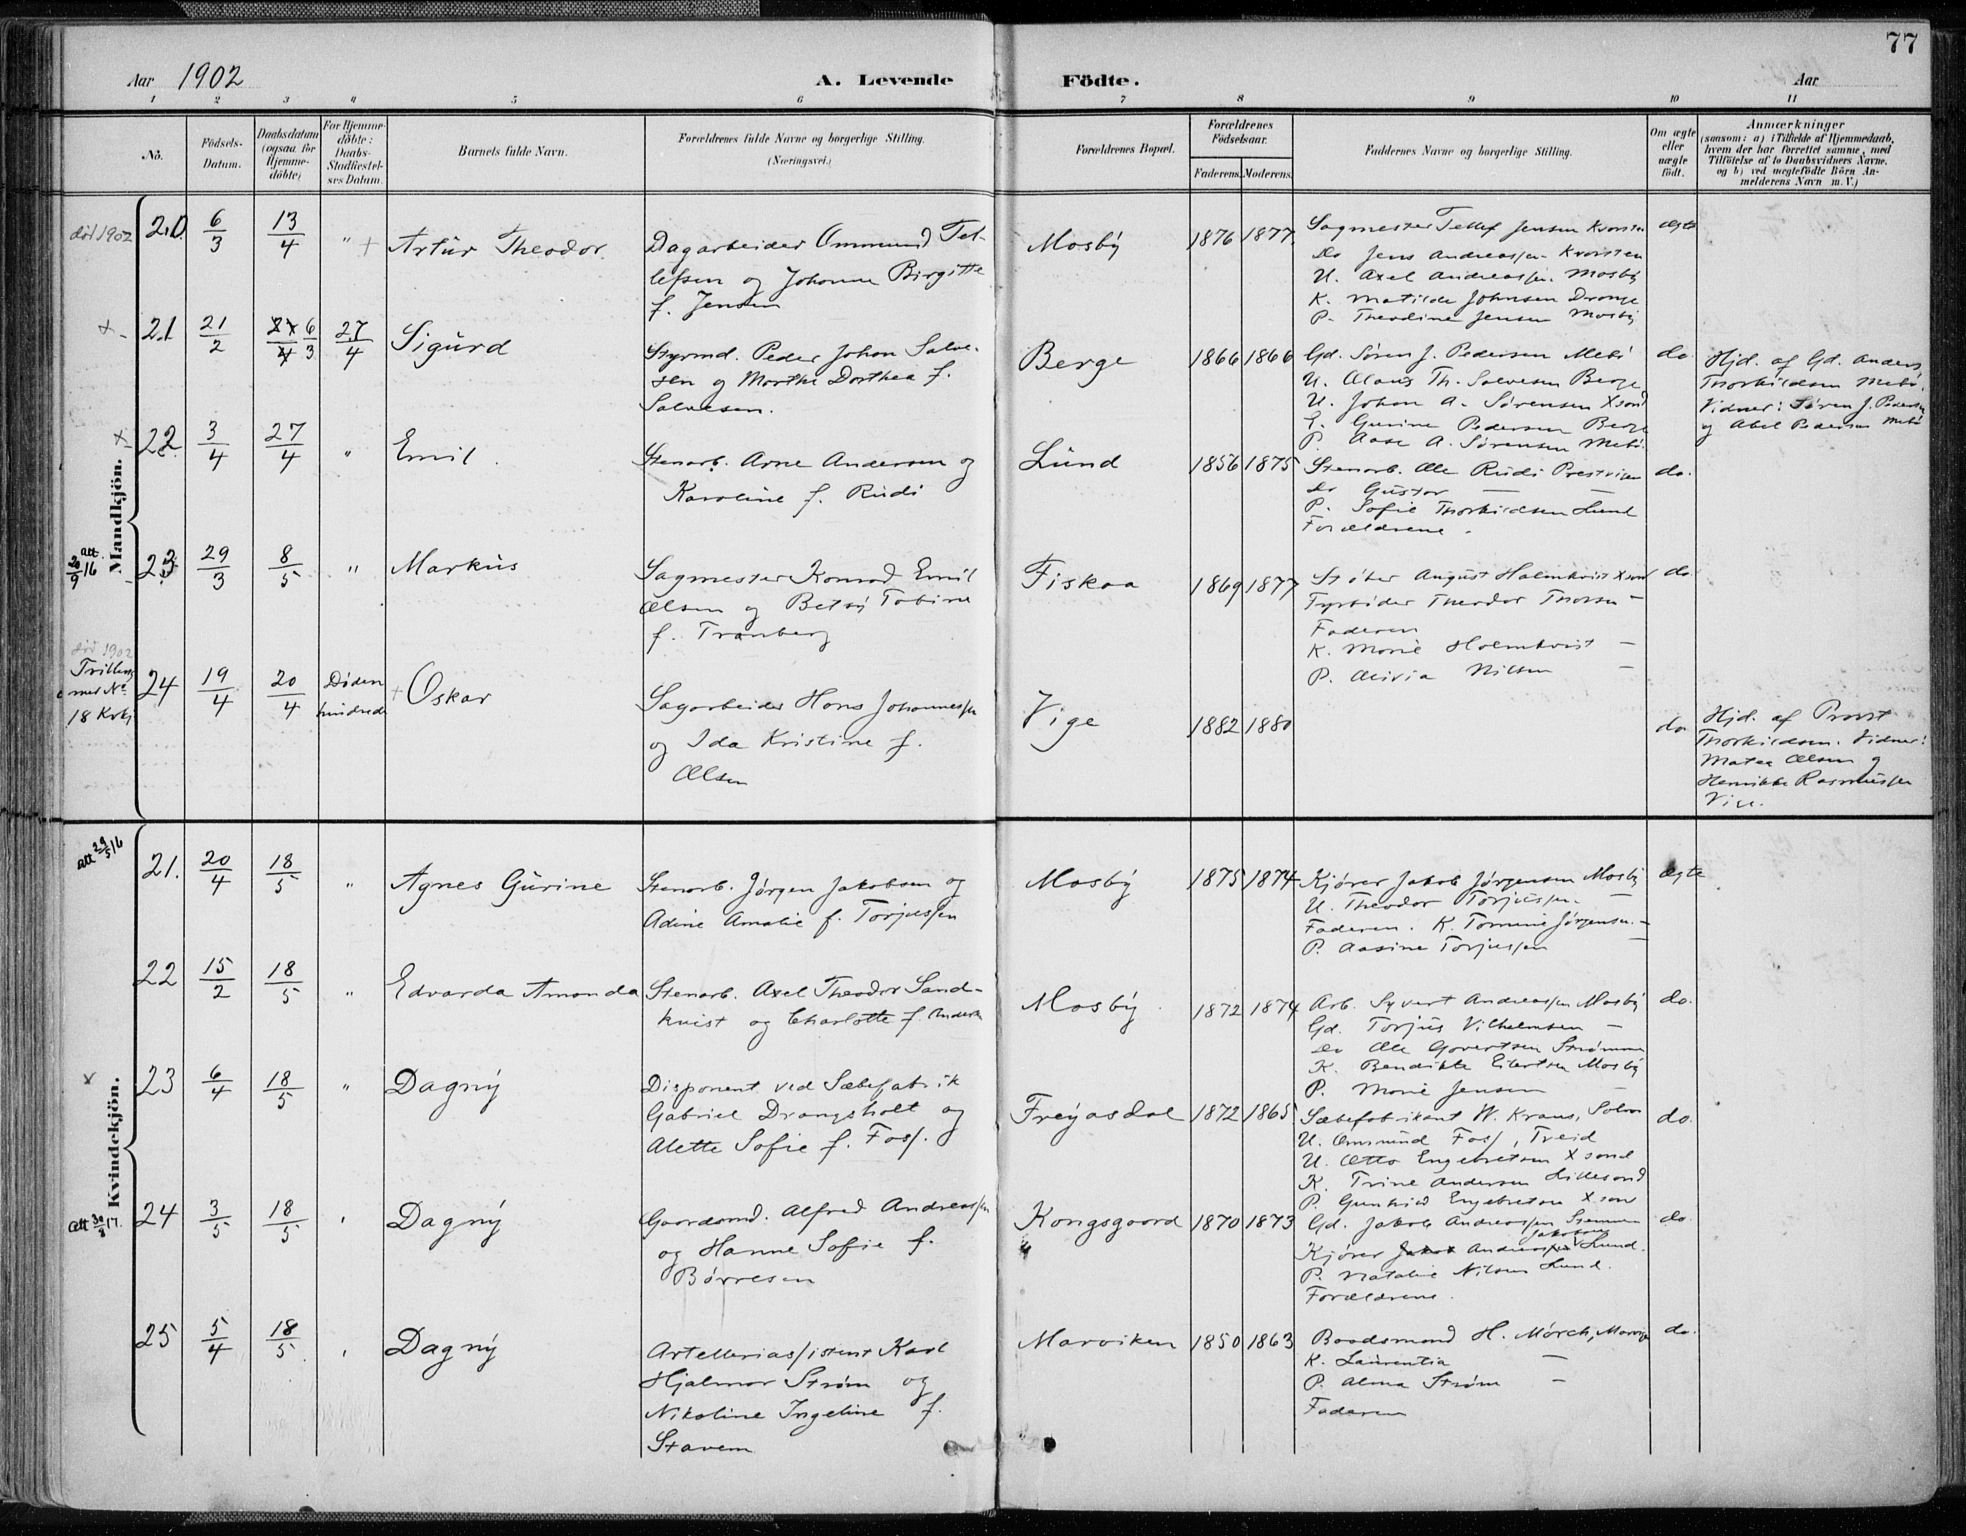 77
Aar 1902 A. Levende Födte. Aar
1 2 3 4 5 6 7 8 9 10 11
No. Födsels-Datum. Daabsdatum (ogsaa for Hjemme-döbte) For Hjemme-döbte: Daabs-Stadfæstel-ses Datum. Barnets fulde Navn. Forældrenes fulde Navne og borgerlige Stilling. (Næringsvei.) Forældrenes Bopæl. Forældrenes Födselsaar. Faderens. Moderens. Faddernes Navne og borgerlige Stilling. Om ægte eller uægte födt. Anmærkninger (saasom: a) i Tilfælde af Hjemmedaab, hvem der har forrettet samme, med Tilföielse af to Daabsvidners Navne, og b) ved uægtefödte Börn Anmelderens Navn m. V.)
Mandkjön.
død 1902 20. 6/3 13/4 " + Artur Theodor. Dagarbeider Ommund Tel-
lefsen og Johanne Birgitte
f. Jensen
Mosby 1876 1877 Sagmester Tellef Jensen
Do Jens Andreassen
U. Axel Andreassen Mosby
K. Matilde Johnsen Drange
P. Theodine Jensen Mosby
ægte
21 21/2 6/3 27/4 Sigurd Styrmd. Peder Johan Salve-
sen og Marthe Dorthea f.
Salvesen.
Berge 1866 1866 Gd. Søren J. Pedersen Mebø
U. Olaus Th. Salvesen Berge
U. Johan A. Sørensen Xsand
Gurine Pedersen Berge
P. Aase A. Sørensen Mebø
do. Hjd. af Gd. Anders
Thorkildsen Mebø.
Vidner: Søren J. Pedersen
og Abel Pedersen Mebø
22 3/4 27/4 " Emil. Stenarb. Arne Andersen og
Karoline f. Rudi
Lund 1856 1875 Stenarb. Ole Rudi
Do Gustav — —
P. Sofie Thorkildsen Lund
Forældrene.
do.
att. 20/9 16 23 29/3 8/5 " Markus Sagmester Konrad Emil
Olsen og Betsy Tobine
f. Tranberg
Fiskaa 1869 1877 August Holmkvist Xsand
Theodor —
Faderen
K. Marie Holmkvist —
P. Olivia Nilsen —
do
død 1902
Trilling
med No
18 Kvkj 24 19/4 20/4 Døden
hindrede + Oskar Sagarbeider Hans Johannessen
og Ida Kristine f.
Olsen
Vige 1882 1880 do Hjd. af Provst
Thorkildsen. Vidner:
Matea Olsen og
Henrikke Rasmussen
Vige.
Kvindekjön.
att 29/5 16 21. 20/4 18/5 " Agnes Gurine Stenarb. Jørgen Jakobsen og
Adine Amalie f. Torjussen
Mosby 1875 1874 Kjører Jakob Jørgensen Mosby
U. Theodor Torjussen. —
Faderen. K. Tomine Jørgensen. —
P. Aasine Torjussen —
ægte
22 15/2 18/5 " Edvarda Amanda Stenarb. Axel Theodor Sand-
kvist og Charlotte f. Andersen
Mosby 1872 1874 Arb. Syvert Andreassen Mosby
Gd. Torjus Vilhelmsen —
Do Ole Govertsen Strømme
K. Bendikte Eilertsen Mosby
P. Marie Jensen —
do.
23 6/4 18/5 " Dagny Disponent ved Sæbefabrik
Gabriel Drangsholt og
Alette Sofie f. Foss.
Freyasdal 1872 1865 Sæbefabrikant W. Kraus,
U. Omsmund Foss, Treid
U. Otto Engebretsen Xsand
K. Trine Andersen Lillesand
P. Gunhild Engebretsen Xsand
do.
Att 30/3 17. 24 3/5 18/5 Dagny Gaardmd. Alfred Andreassen
og Hanne Sofie f.
Børresen
Kongsgaard 1870 1873 Gd. Jakob Andreassen
Jakobsen
Kjører Jakob Andreassen Lund.
P. Natalie Nilsen Lund.
Forældrene.
do.
25 5/4 18/5 Dagny Artelleriassistent Karl
Hjalmar Strøm og
Nikoline Ingeline f.
Stavem
Marviken 1850 1863 Baadsmand H. Mørch, Marviken
K. Laurentia —
P. Alma Strøm —
Faderen
do.